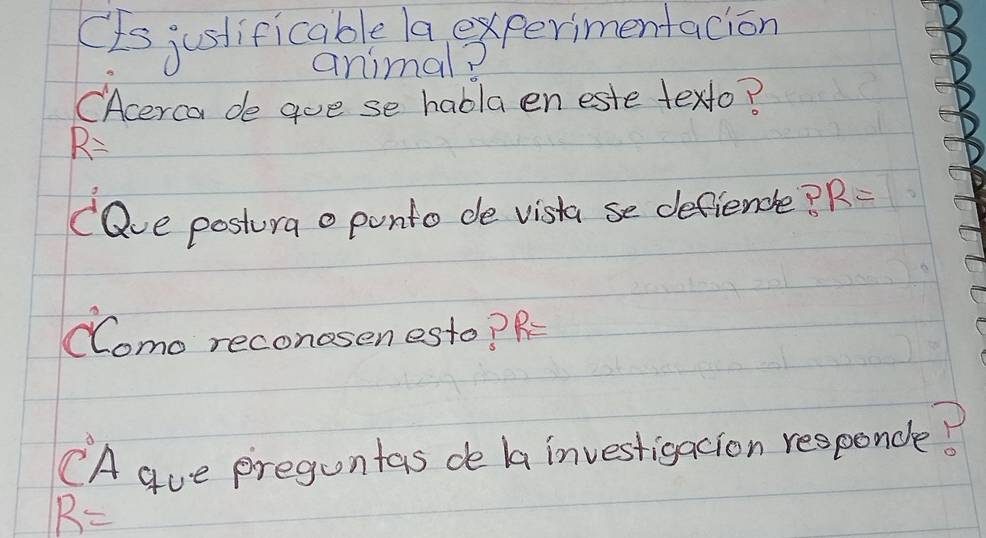 ¿Es justificable la experimentación
animal?
¿Acerca de que se habla en este texto?
R=
¿Que postura o punto de vista se defiende? R=
¿Como reconosen esto? R=
¿A que preguntas de la investigacion responde?
R=